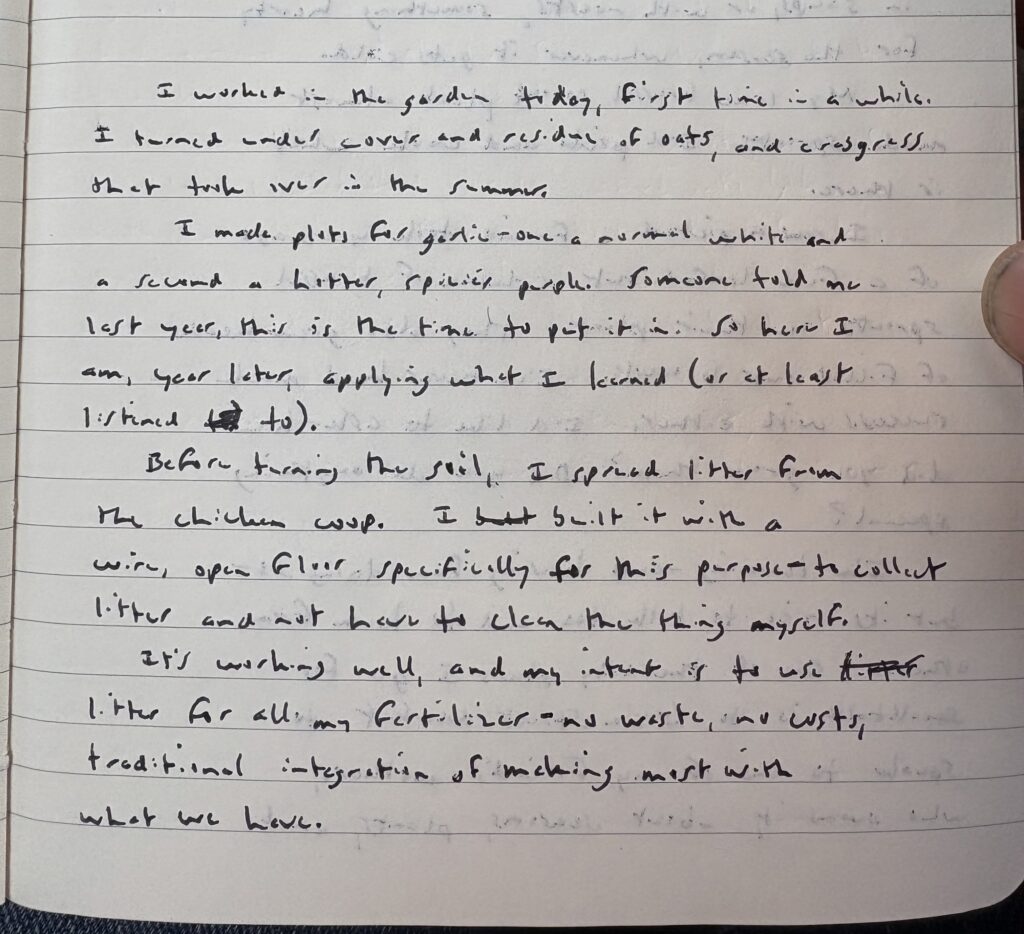 I worked in the garden today, first time in a while.
I turned under cover and residue of oats, and crabgrass
that took over in the summer.
I made plots for garlic - one a normal white and
a second a hotter, spicier purple. Someone told me
last year, this is the time to put it in. So here I
am, year later, applying what I learned (or at least
listened to).
Before turning the soil, I spread litter from
the chicken coop. I built it with a
wire, open floor specifically for this purpose - to collect
litter and not have to clean the thing myself.
It's working well, and my intent is to use
litter for all my fertilizer - no waste, no costs,
traditional integration of making most with
what we have.